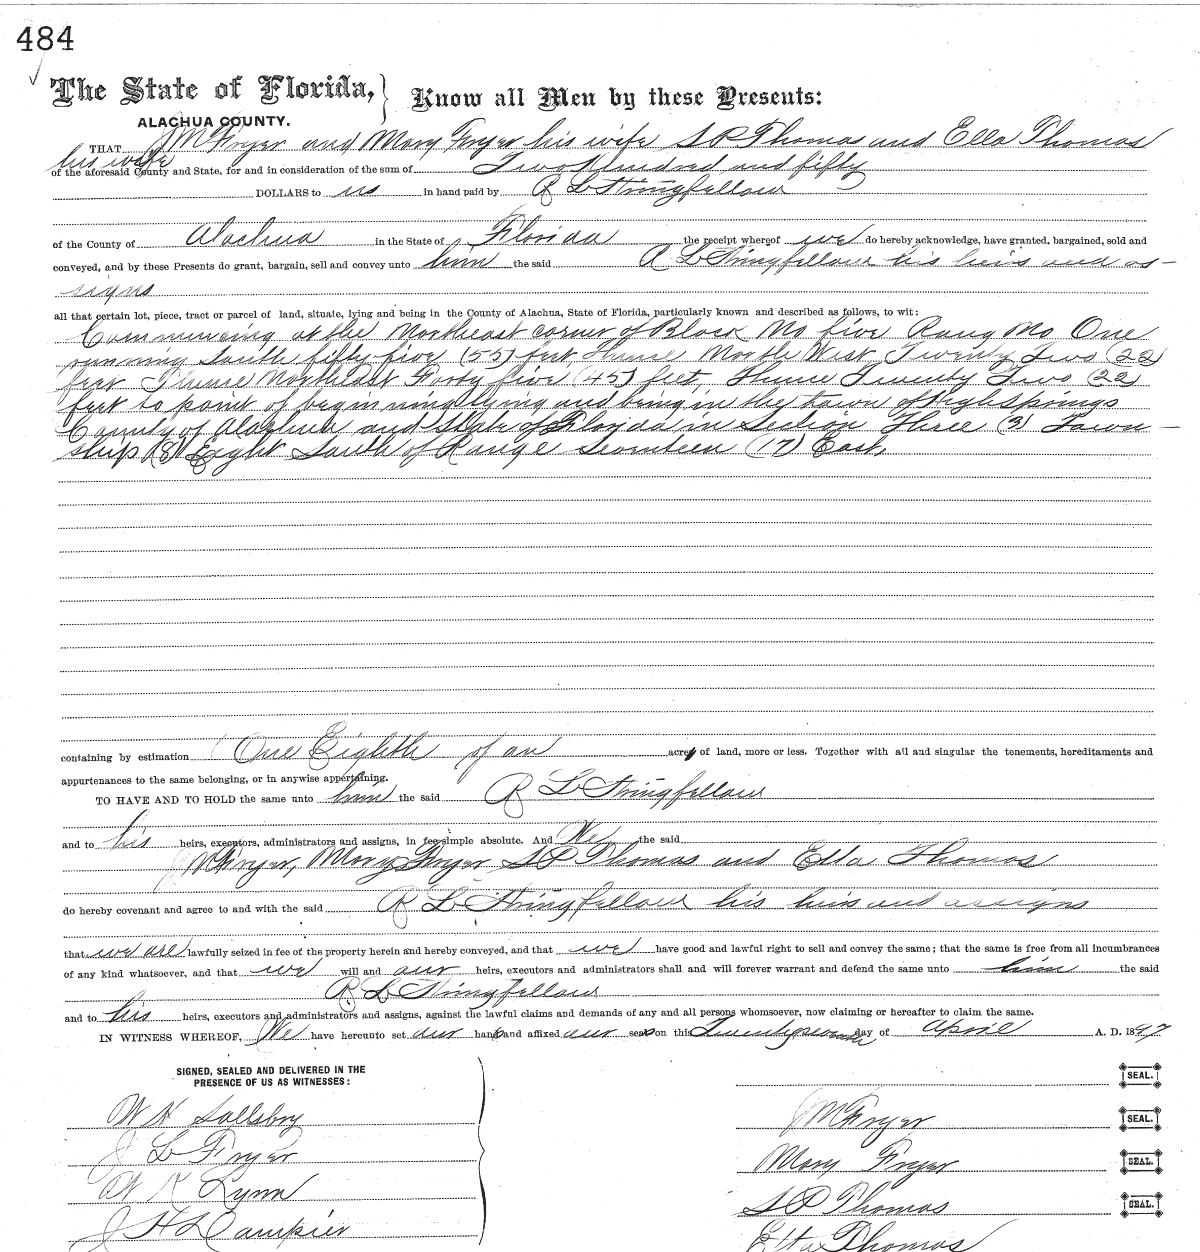 484
The State of Florida, } Know all Men by these Presents:
ALACHUA COUNTY.
THAT J M Fryer and Mary Fryer his wife S P Thomas and Ella Thomas
his wife
of the aforesaid County and State, for and in consideration of the sum of Two Hundred and fifty
DOLLARS to us in hand paid by R L Stringfellow
of the County of Alachua in the State of Florida the receipt whereof we do hereby acknowledge, have granted, bargained, sold and
conveyed, and by these Presents do grant, bargain, sell and convey unto him the said R L Stringfellow his heirs and as-
signs
all that certain lot, piece, tract or parcel of land, situate, lying and being in the County of Alachua, State of Florida, particularly known and described as follows, to wit:
Commencing at the Northeast corner of Block No five Rang No One
running South fifty five (55) feet thence North West Twenty Two (22)
feet Thence Northeast Forty five (45) feet, thence Twenty Two (22)
feet to point of beginning lying and being in the town of High Springs
County of Alachua and State of Florida in Section Three (3) Town-
ship (8) Eight South of Range Seventeen (17) East,
containing by estimation One Eighth of an acre of land, more or less. Together with all and singular the tenements, hereditaments and
appurtenances to the same belonging, or in anywise appertaining.
TO HAVE AND TO HOLD the same unto him the said R L Stringfellow
and to his heirs, executors, administrators and assigns, in fee simple absolute. And We the said
J M Fryer, Mary Fryer S P Thomas and Ella Thomas
do hereby covenant and agree to and with the said R L Stringfellow his heirs and assigns
that we are lawfully seized in fee of the property herein and hereby conveyed, and that we have good and lawful right to sell and convey the same; that the same is free from all incumbrances
of any kind whatsoever, and that we will and our heirs, executors and administrators shall and will forever warrant and defend the same unto him the said
R L Stringfellow
and to his heirs, executors and administrators and assigns, against the lawful claims and demands of any and all persons whomsoever, now claiming or hereafter to claim the same.
IN WITNESS WHEREOF, We have hereunto set our hands and affixed our seals on this Twentyseventh day of April A. D. 1897
SIGNED, SEALED AND DELIVERED IN THE
PRESENCE OF US AS WITNESSES:
SEAL.
W H Sallsby
J M Fryer SEAL.
J L Fryer
Mary Fryer SEAL.
W R Lynn
S P Thomas SEAL.
J H Dampier
Ella Thomas